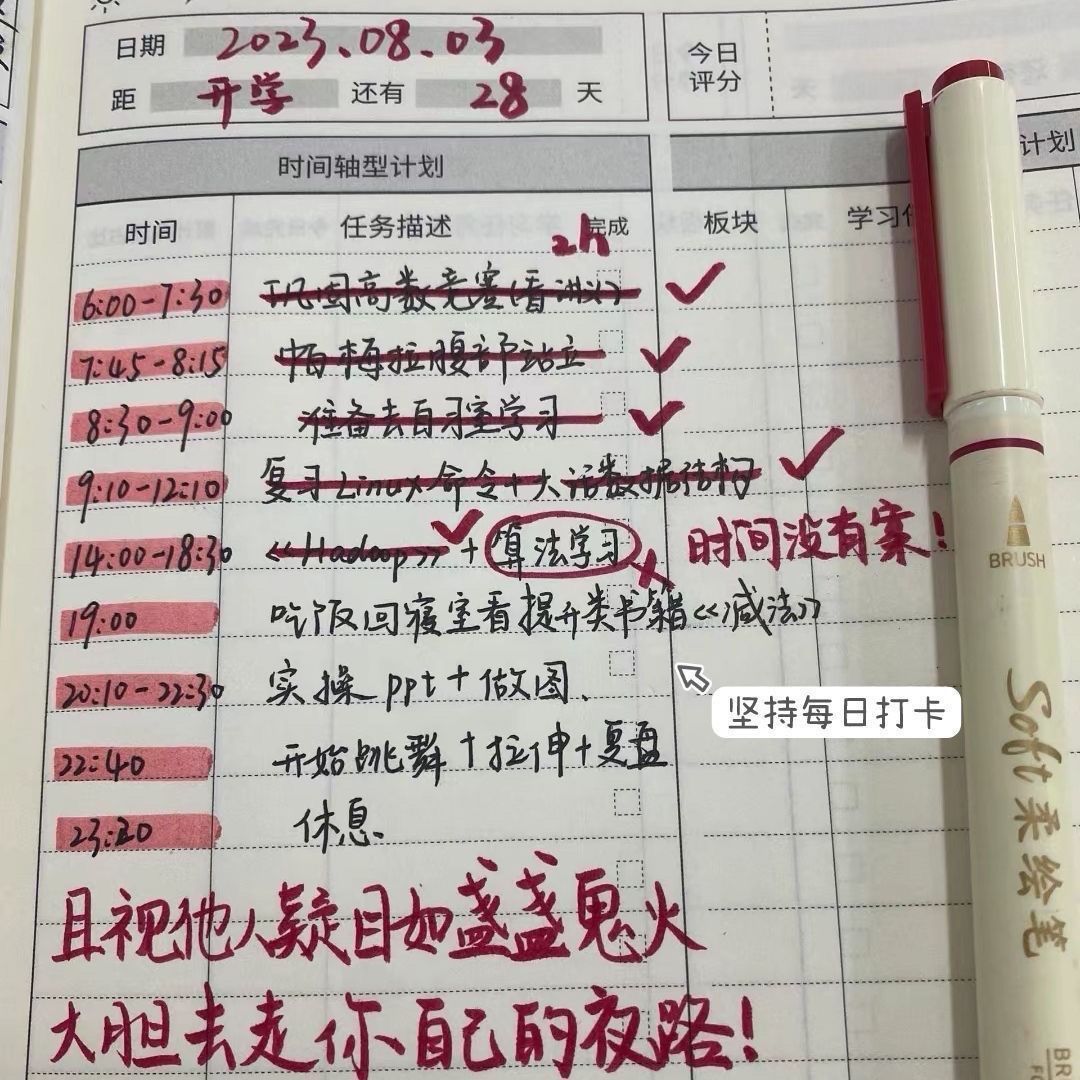 日期 2023.08.03
距 开学 还有 28 天
今日
评分
时间轴型计划
计划
时间 任务描述 完成 板块 学习
2h
6:00-7:30 巩固高数竞赛(看讲义)
7:45-8:15 帕梅拉腹部站立
8:30-9:00 准备去自习室学习
9:10-12:10 复习Linux命令+大话数据结构
14:00-18:30 《Hadoop》+算法学习 时间没有案!
19:00 吃饭回寝室看提升类书籍《减法》
20:10-22:30 实操ppt+做图.
22:40 开始跳舞+拉伸+复盘
23:20 休息.
坚持每日打卡
且视他人疑目如盏盏鬼火
大胆去走你自己的夜路!
BRUSH
Soft柔绘笔